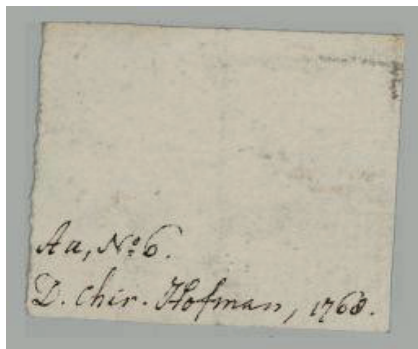 Aa, No 6.
D. Chir. Hofman, 1768.